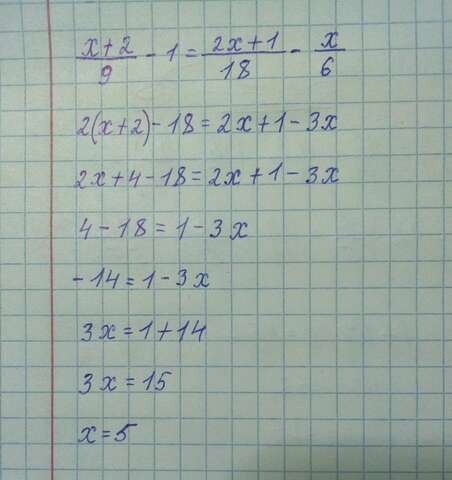 (x+2)/9 - 1 = (2x+1)/18 - x/6
2(x+2) - 18 = 2x + 1 - 3x
2x + 4 - 18 = 2x + 1 - 3x
4 - 18 = 1 - 3x
- 14 = 1 - 3x
3x = 1 + 14
3x = 15
x = 5